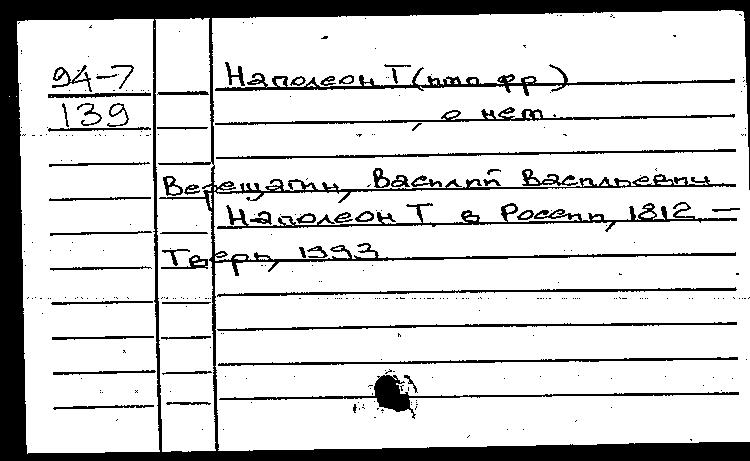 94-7 Наполеон I (имп фр)
139 , о нем.
Верещагин, Василий Васильевич
Наполеон I в России, 1812. —
Тверь, 1993